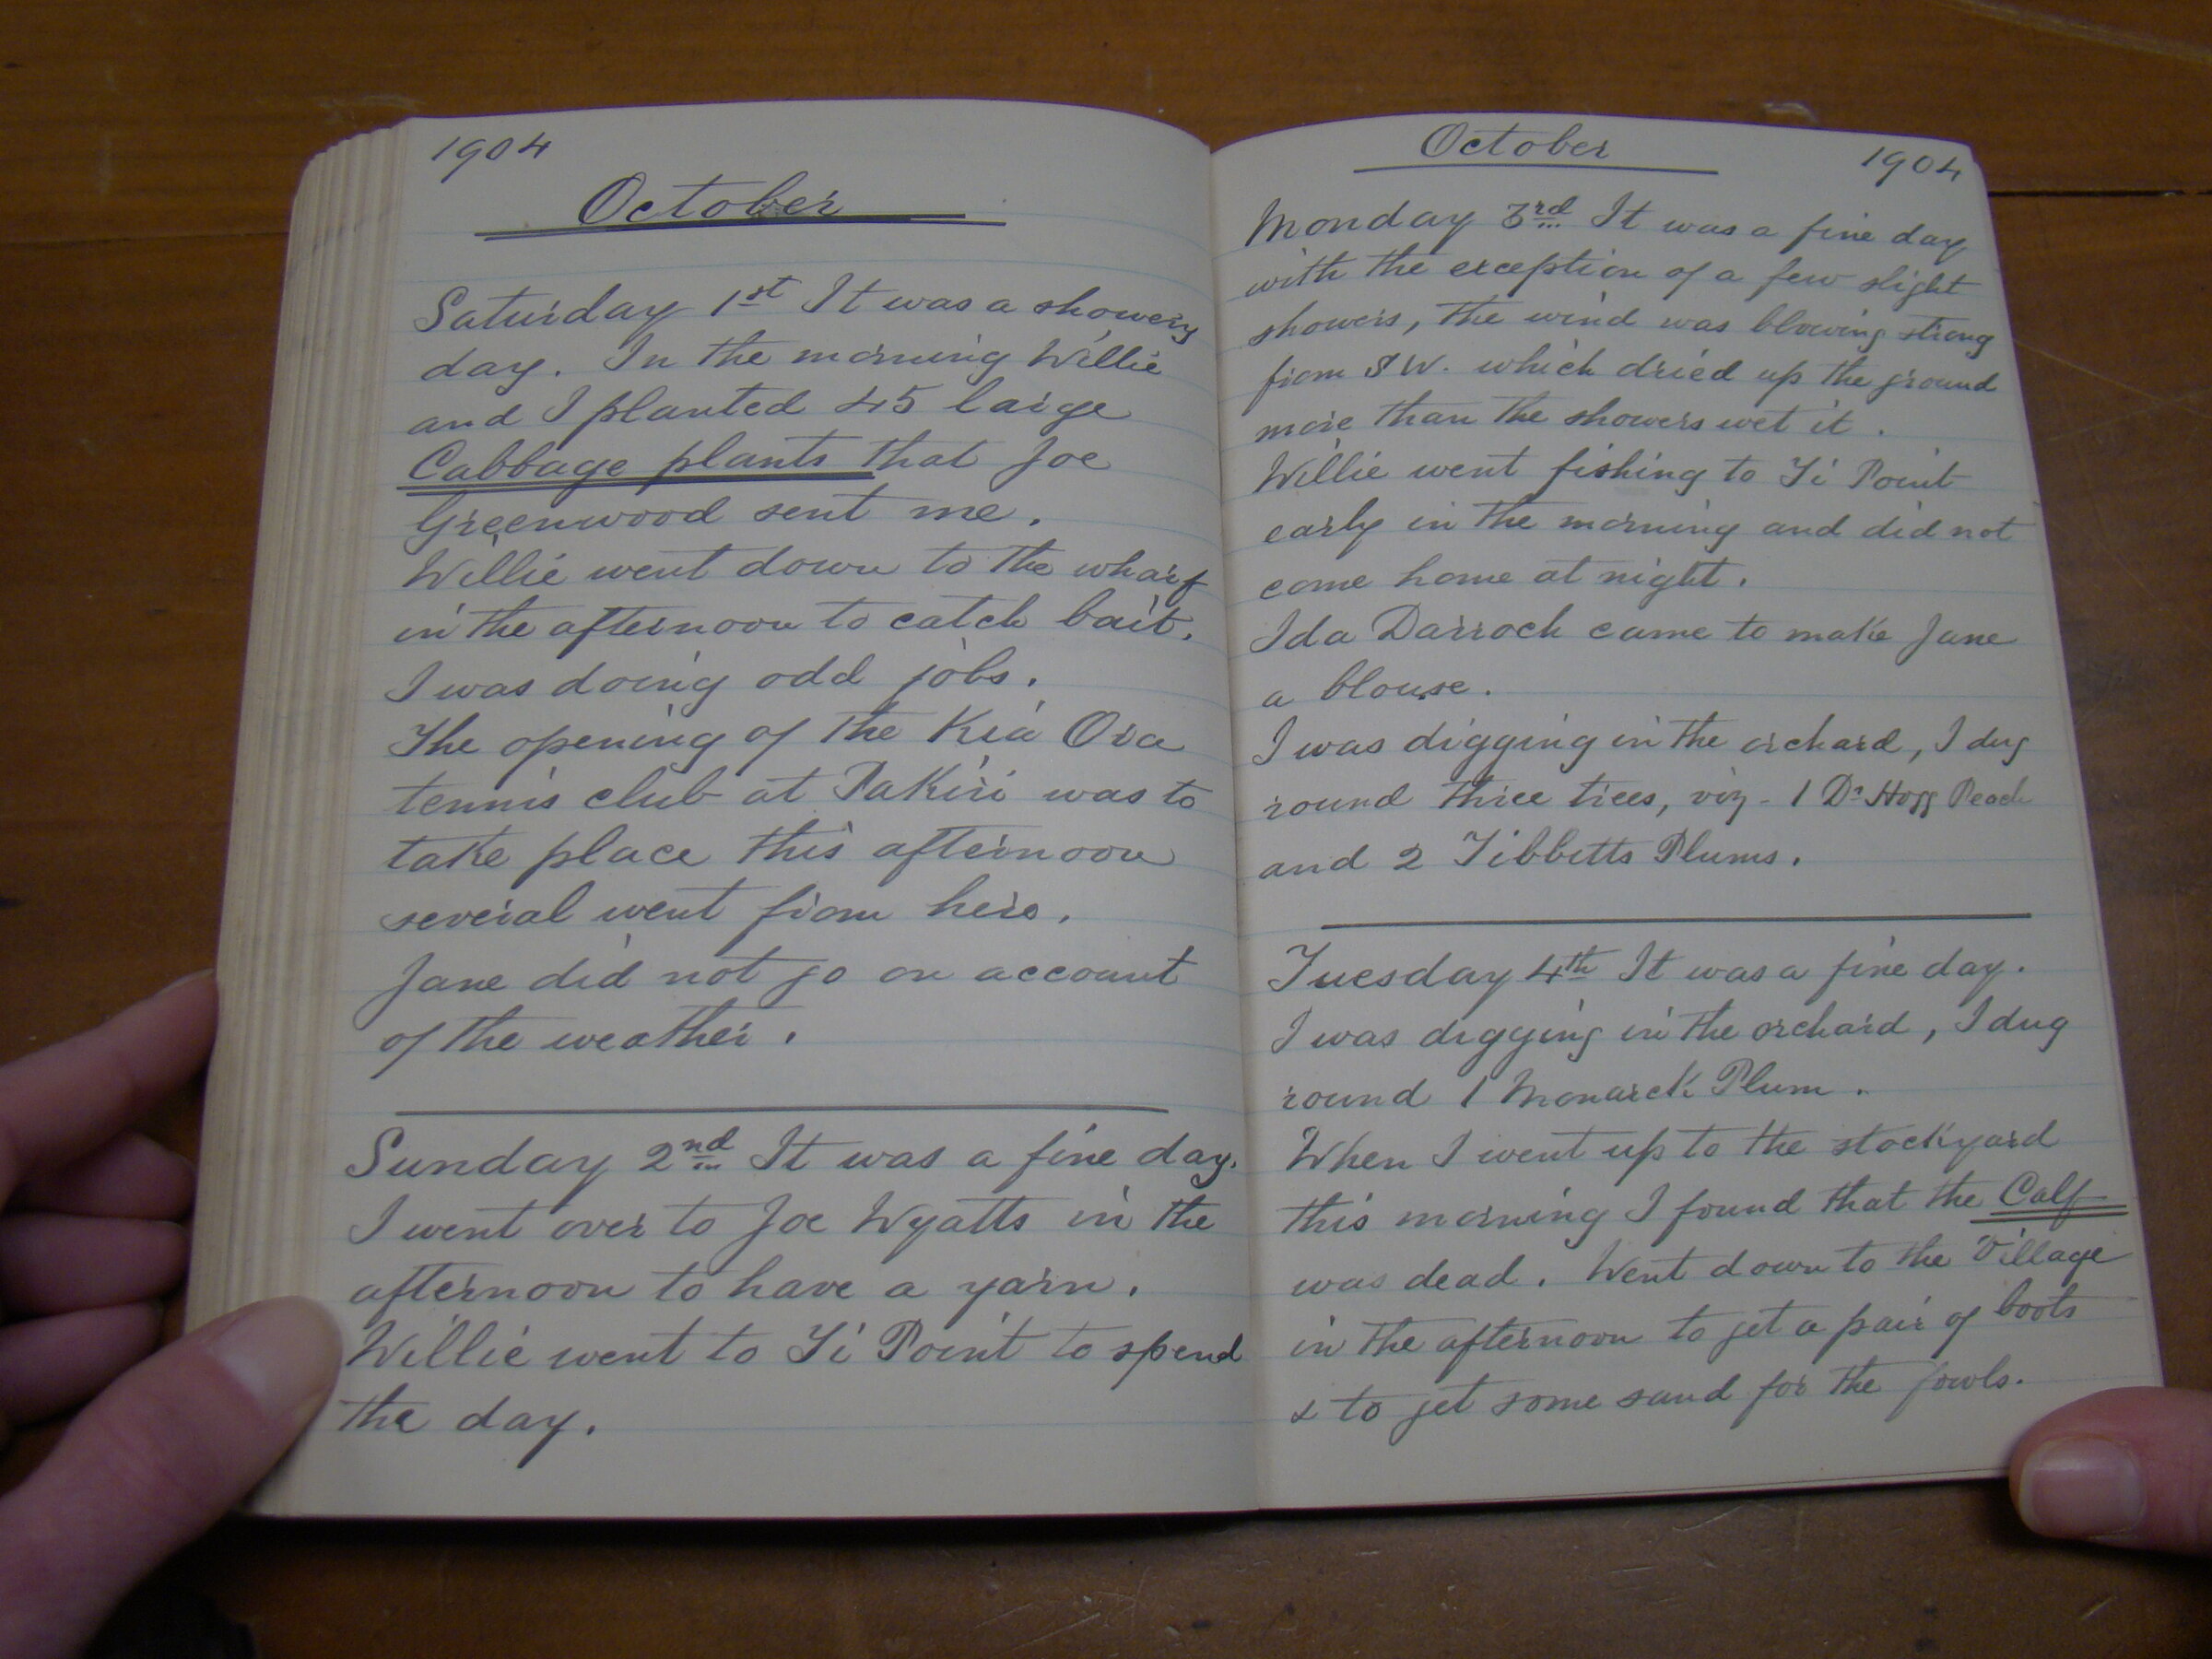 1904
October
Saturday 1st It was a showery
day. In the morning Willie
and I planted 45 large
Cabbage plants that Joe
Greenwood sent me.
Willie went down to the wharf
in the afternoon to catch bait.
I was doing odd jobs.
The opening of the Kia Ora
tennis club at Pakiri was to
take place this afternoon
several went from here.
Jane did not go on account
of the weather.
Sunday 2nd It was a fine day.
I went over to Joe Wyatts in the
afternoon to have a yarn.
Willie went to Ti Point to spend
the day.
October 1904
Monday 3rd It was a fine day
with the exception of a few slight
showers, the wind was blowing strong
from S W. which dried up the ground
more than the showers wet it.
Willie went fishing to Ti Point
early in the morning and did not
come home at night.
Ida Darroch came to make Jane
a blouse.
I was digging in the orchard, I dug
round three trees, viz - 1 Dr Hogg Peach
and 2 Tibbetts Plums.
Tuesday 4th It was a fine day.
I was digging in the orchard, I dug
round 1 Monarch Plum.
When I went up to the stockyard
this morning I found that the Calf
was dead. Went down to the Village
in the afternoon to get a pair of boots
& to get some sand for the fowls.